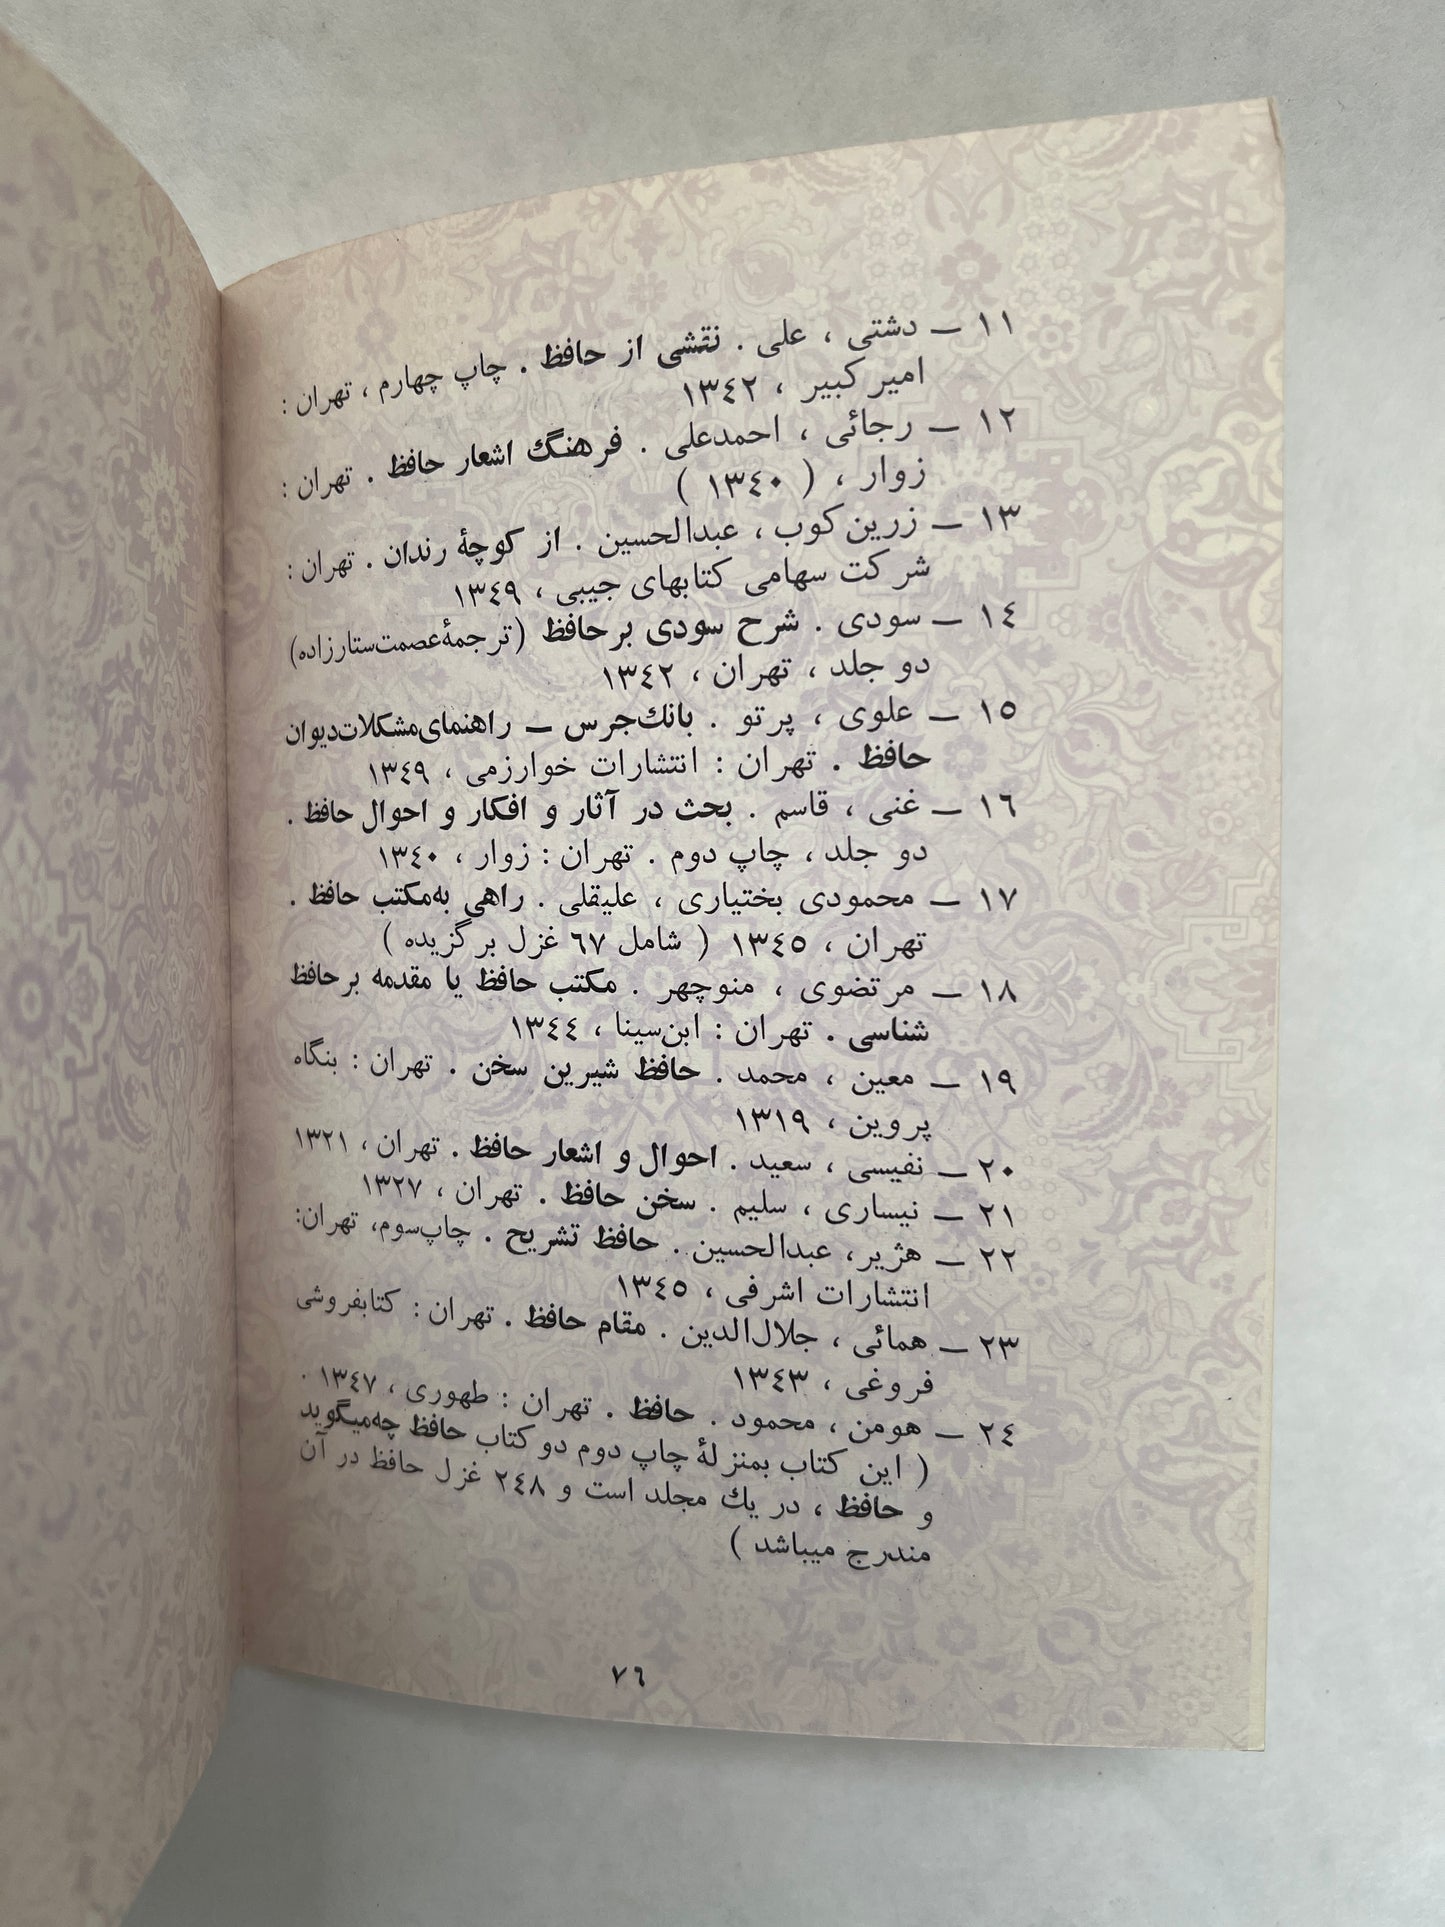 ۱۱ ــ دشتی ، علی . نقشی از حافظ . چاپ چهارم ، تهران :
امیر کبیر ، ۱۳٤۲
۱۲ ــ رجائی ، احمدعلی . فرهنگ اشعار حافظ . تهران :
زوار ، ( ۱۳٤۰ )
۱۳ ــ زرین‌کوب ، عبدالحسین . از کوچهٔ رندان . تهران :
شرکت سهامی کتابهای جیبی ، ۱۳٤۹
۱٤ ــ سودی . شرح سودی برحافظ (ترجمهٔ عصمت ستارزاده)
دو جلد ، تهران ، ۱۳٤۲
۱٥ ــ علوی ، پرتو . بانك جرس ــ راهنمای مشکلات دیوان
حافظ . تهران : انتشارات خوارزمی ، ۱۳٤۹
۱٦ ــ غنی ، قاسم . بحث در آثار و افکار و احوال حافظ .
دو جلد ، چاپ دوم . تهران : زوار ، ۱۳٤۰
۱۷ ــ محمودی بختیاری ، علیقلی . راهی به‌مکتب حافظ .
تهران ، ۱۳٤٥ ( شامل ٦۷ غزل برگزیده )
۱۸ ــ مرتضوی ، منوچهر . مکتب حافظ یا مقدمه برحافظ
شناسی . تهران : ابن‌سینا ، ۱۳٤٤
۱۹ ــ معین ، محمد . حافظ شیرین سخن . تهران : بنگاه
پروین ، ۱۳۱۹
۲۰ ــ نفیسی ، سعید . احوال و اشعار حافظ . تهران ، ۱۳۲۱
۲۱ ــ نیساری ، سلیم . سخن حافظ . تهران ، ۱۳۲۷
۲۲ ــ هژیر، عبدالحسین . حافظ تشریح . چاپ‌سوم، تهران:
انتشارات اشرفی ، ۱۳٤٥
۲۳ ــ همائی ، جلال‌الدین . مقام حافظ . تهران : کتابفروشی
فروغی ، ۱۳٤۳
۲٤ ــ هومن ، محمود . حافظ . تهران : طهوری ، ۱۳٤۷ .
( این کتاب بمنزلهٔ چاپ دوم دو کتاب حافظ چه‌میگوید
و حافظ ، در یك مجلد است و ۲٤۸ غزل حافظ در آن
مندرج میباشد )
۷٦